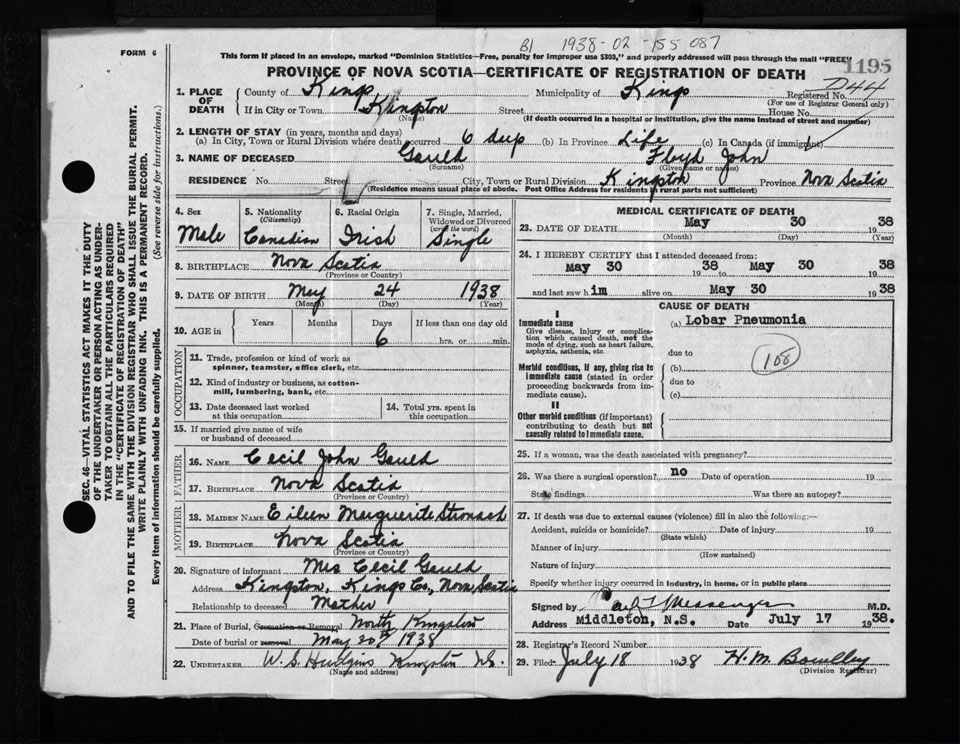 B1 1938-02-155 087
FORM 6
This form if placed in an envelope, marked "Dominion Statistics—Free, penalty for improper use $300," and properly addressed will pass through the mail "FREE"
1195
PROVINCE OF NOVA SCOTIA—CERTIFICATE OF REGISTRATION OF DEATH
1. PLACE OF DEATH
County of Kings Municipality of Kings Registered No. 044
(For use of Registrar General only)
If in City or Town Kingston Street House No.
(Name) (If death occurred in a hospital or institution, give the name instead of street and number)
2. LENGTH OF STAY (in years, months and days)
(a) In City, Town or Rural Division where death occurred 6 days (b) In Province Life (c) In Canada (if immigrant)
3. NAME OF DECEASED Gauld Floyd John
(Surname) (Given name or names)
RESIDENCE No. Street City, Town or Rural Division Kingston Province Nova Scotia
(Residence means usual place of abode. Post Office Address for residents in rural parts not sufficient)
4. Sex 5. Nationality (Citizenship) 6. Racial Origin 7. Single, Married, Widowed or Divorced (write the word)
Male Canadian Irish Single
8. BIRTHPLACE Nova Scotia
(Province or Country)
9. DATE OF BIRTH May 24 1938
(Month) (Day) (Year)
10. AGE in Years Months Days If less than one day old
6 hrs. or min.
OCCUPATION
11. Trade, profession or kind of work as spinner, teamster, office clerk, etc.
12. Kind of industry or business, as cotton-mill, lumbering, bank, etc.
13. Date deceased last worked at this occupation
14. Total yrs. spent in this occupation
15. If married give name of wife or husband of deceased
FATHER
16. NAME Cecil John Gauld
17. BIRTHPLACE Nova Scotia
(Province or Country)
MOTHER
18. MAIDEN NAME Eileen Marguerite Stronach
19. BIRTHPLACE Nova Scotia
(Province or Country)
20. Signature of informant Mrs Cecil Gauld
Address Kingston, Kings Co., Nova Scotia
Relationship to deceased Mother
21. Place of Burial, Cremation or Removal North Kingston
Date of burial or removal May 30th 1938
22. UNDERTAKER W. S. Hudgins Kingston N.S.
(Name and address)
MEDICAL CERTIFICATE OF DEATH
23. DATE OF DEATH May 30 1938
(Month) (Day) (Year)
24. I HEREBY CERTIFY that I attended deceased from:
May 30 1938 to May 30 1938
and last saw him alive on May 30 1938
CAUSE OF DEATH
I
Immediate cause
Give disease, injury or complication which caused death, not the mode of dying, such as heart failure, asphyxia, asthenia, etc.
(a) Lobar Pneumonia
due to
108
Morbid conditions, if any, giving rise to immediate cause (stated in order proceeding backwards from immediate cause).
(b)
due to
(c)
II
Other morbid conditions (if important) contributing to death but not causally related to immediate cause.
25. If a woman, was the death associated with pregnancy?
26. Was there a surgical operation? no Date of operation 19
State findings Was there an autopsy?
27. If death was due to external causes (violence) fill in also the following:—
Accident, suicide or homicide? Date of injury 19
(State which)
Manner of injury
(How sustained)
Nature of injury
Specify whether injury occurred in industry, in home, or in public place
Signed by Carl T Messenger M.D.
Address Middleton, N.S. Date July 17 1938.
28. Registrar's Record Number
29. Filed July 18 1938 H. M. Bowlby
(Division Registrar)
SEC. 46—VITAL STATISTICS ACT MAKES IT THE DUTY
OF THE UNDERTAKER OR PERSON ACTING AS UNDER-
TAKER TO OBTAIN ALL THE PARTICULARS REQUIRED
IN THE "CERTIFICATE OF REGISTRATION OF DEATH"
AND TO FILE THE SAME WITH THE DIVISION REGISTRAR WHO SHALL ISSUE THE BURIAL PERMIT.
WRITE PLAINLY WITH UNFADING INK. THIS IS A PERMANENT RECORD.
Every item of information should be carefully supplied. (See reverse side for instructions.)